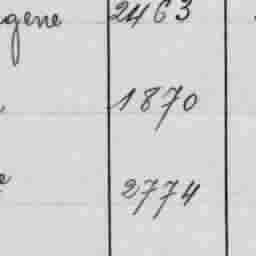 gene 2463
1870
2774